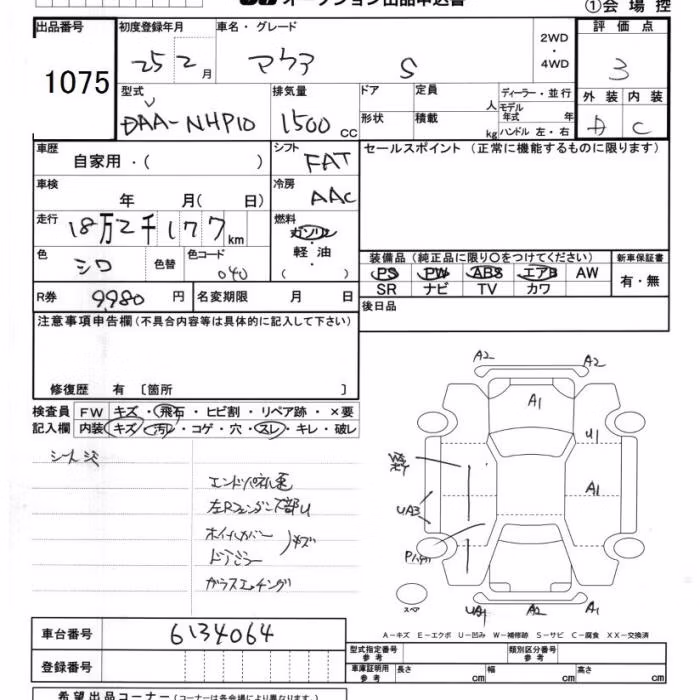 オークション出品申込書 ①会場控
出品番号 1075
初度登録年月 25 2月
車名・グレード アクア S
2WD・4WD
評価点 3
外装 内装
D C
型式 DAA-NHP10
排気量 1500 cc
ドア 定員 人
形状 積載 kg
ディーラー・並行
モデル年式 年
ハンドル 左・右
車歴 自家用・( )
シフト FAT
セールスポイント(正常に機能するものに限ります)
車検 年 月( 日)
冷房 AAC
走行 18万2千177km
燃料 ガソリン・軽油・( )
色 シロ 色替 色コード 040
装備品(純正品に限り○をつけてください) 新車保証書
PS PW ABS エアB AW 有・無
SR ナビ TV カワ
R券 9980円 名変期限 月 日
後日品
注意事項申告欄(不具合内容等は具体的に記入して下さい)
修復歴 有 〔箇所 〕
検査員 FW キズ・飛石・ヒビ割・リペア跡・×要
記入欄 内装 キズ・汚レ・コゲ・穴・スレ・キレ・破レ
エンドパネル
左Rフェンダー下部U
ホイルカバー キズ
ドアミラー
ガラスエッチング
A2 A2
A1
U1
A1
UA3
スペア
UA1 A2 A1
A-キズ E-エクボ U-凹み W-補修跡 S-サビ C-腐食 XX-交換済
車台番号 6134064
型式指定番号 参考 類別区分番号 参考
登録番号
車庫証明用 参考 長さ cm 幅 cm 高さ cm
希望出品コーナー(コーナーは各会場により異なります。)